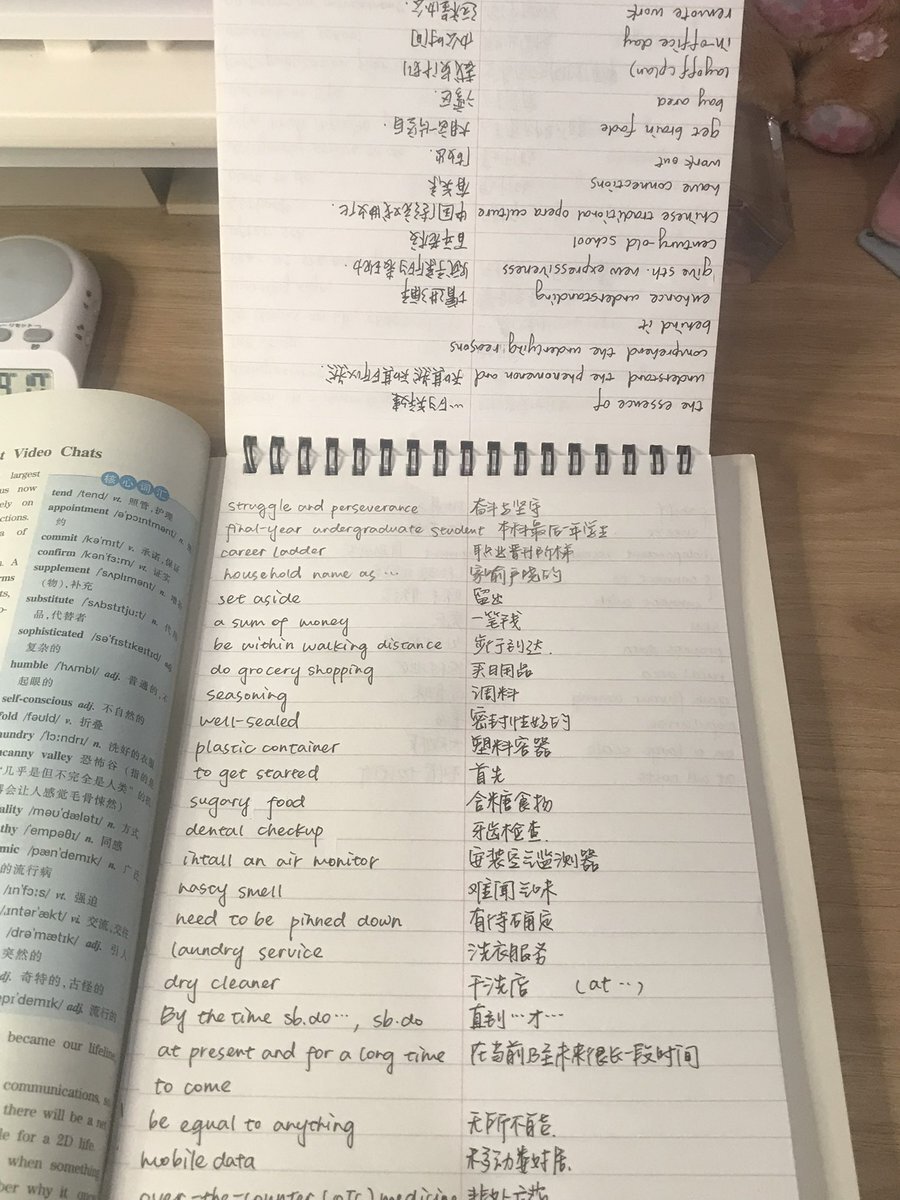 remote work 远程办公.
in-office day 办公时间
layoff (plan) 裁员计划
bay area 湾区.
get brain fade 大脑一片空白.
work out
have connections 有关系
Chinese traditional opera culture 中国传统戏曲文化.
century-old school 百年老校
give sth. new expressiveness 赋予新的表现力
enhance understanding 增进理解
behind it
comprehend the underlying reasons
understand the phenomenon and 知其然知其所以然.
the essence of …的关键
struggle and perseverance 奋斗与坚守
final-year undergraduate student 本科最后一年学生
career ladder 职业晋升阶梯
household name as … 家喻户晓的
set aside 留出
a sum of money 一笔钱
be within walking distance 步行到达.
do grocery shopping 买日用品
seasoning 调料
well-sealed 密封性好的
plastic container 塑料容器
to get started 首先
sugary food 含糖食物
dental checkup 牙齿检查.
intall an air monitor 安装空气监测器
nasty smell 难闻气味
need to be pinned down 有待确定
laundry service 洗衣服务
dry cleaner 干洗店 (at …)
By the time sb.do…, sb.do 直到…才…
at present and for a long time 在当前乃至未来很长一段时间
to come
be equal to anything 无所不能.
mobile data 移动数据.
over-the-counter (OTC) medicine 非处方药
t Video Chats
largest
us now
ely on
ctions.
a of
. A
rms
ts,
核心词汇
tend /tend/ vt. 照管,护理
appointment /ə'pɔɪntmənt/ n.
的
commit /kə'mɪt/ v. 承诺,保证
confirm /kən'fɜ:m/ vt. 证实
supplement /'sʌplɪmənt/ n.
(物),补充
substitute /'sʌbstɪtju:t/
品,代替者
sophisticated /sə'fɪstɪkeɪtɪd/ adj.
复杂的
humble /'hʌmbl/ adj. 普通的,不
起眼的
self-conscious adj. 不自然的
fold /fəʊld/ v. 折叠
aundry /'lɔ:ndri/ n. 洗好的衣服
ncanny valley 恐怖谷 (指的是
“几乎是但不完全是人类”的
会让人感觉毛骨悚然)
ality /məʊ'dæləti/ n. 方式
thy /'empəθi/ n. 同感
mic /pæn'demɪk/ n. 广泛
的流行病
/ɪn'fɔ:s/ vt. 强迫
/ˌɪntər'ækt/ vi. 交流,交往
/drə'mætɪk/ adj. 引人
突然的
adj. 奇特的,古怪的
epɪ'demɪk/ adj. 流行的
became our lifeline
communications, so
there will be a net
le for a 2D life.
when something
ber why it